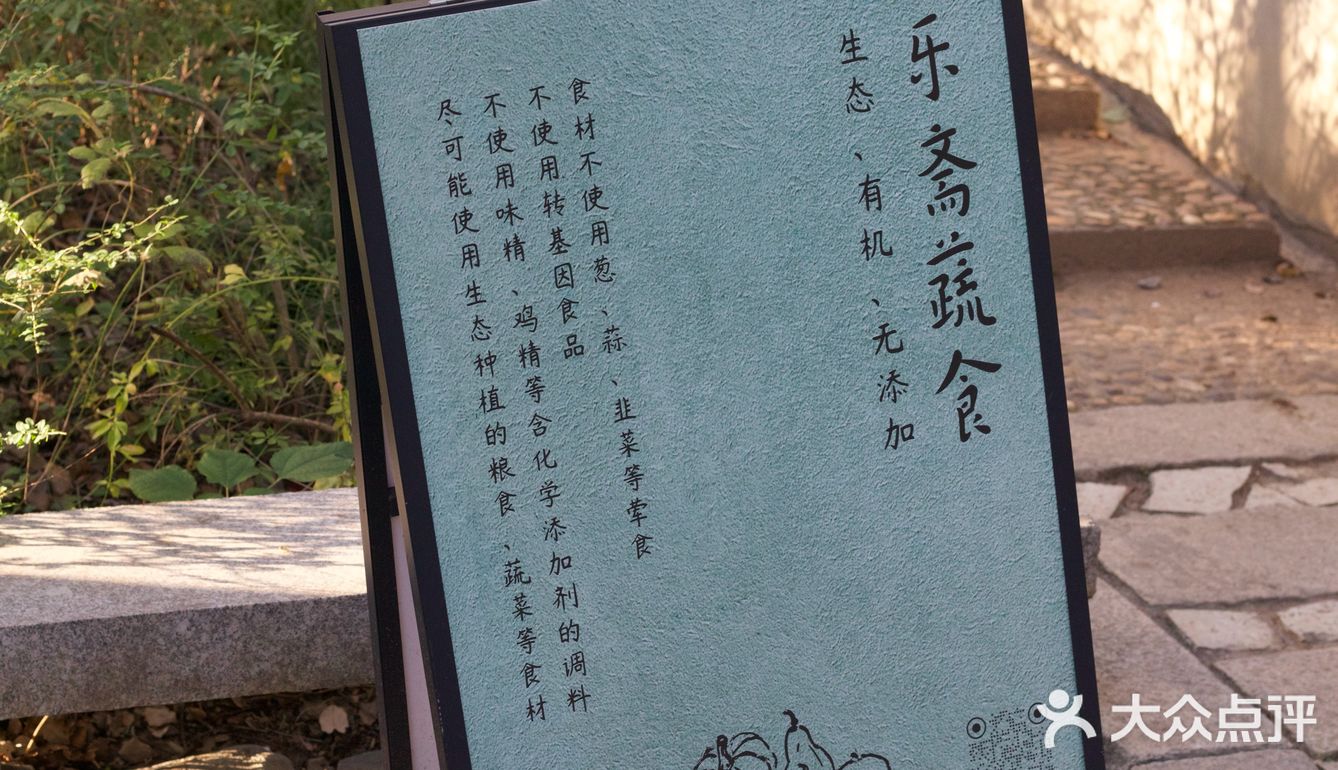 乐斋蔬食
生态、有机、无添加
食材不使用葱、蒜、韭菜等荤食
不使用转基因食品
不使用味精、鸡精等含化学添加剂的调料
尽可能使用生态种植的粮食、蔬菜等食材
大众点评